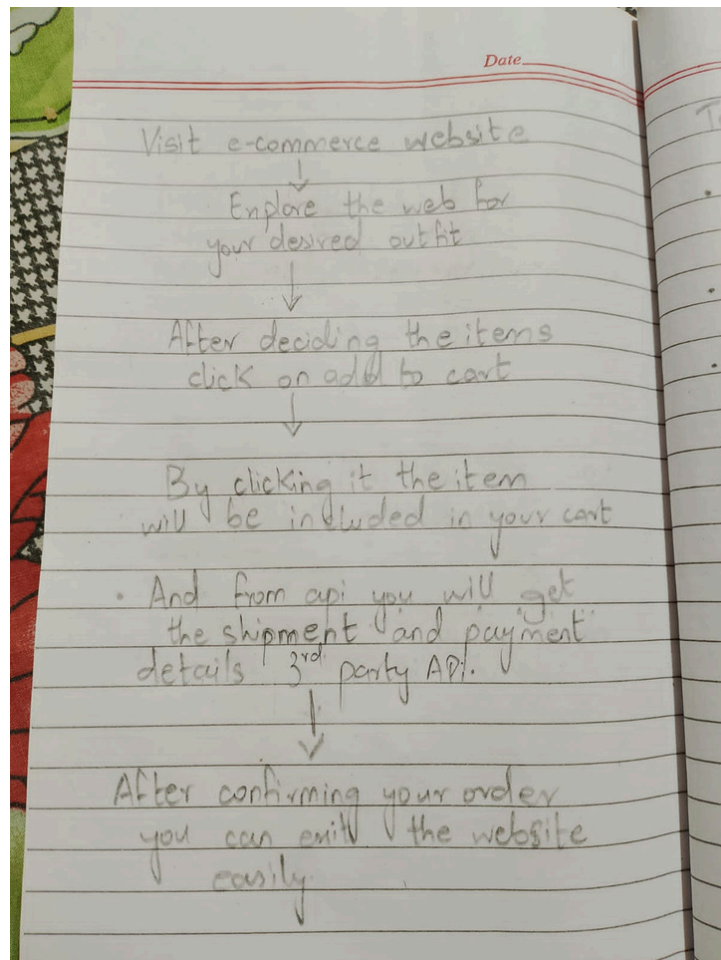 Date
Visit e-commerce website
↓
Explore the web for
your desired outfit
↓
After deciding the items
click on add to cart
↓
By clicking it the item
will be included in your cart
• And from api you will get
the shipment and payment
details 3rd party API.
↓
After confirming your order
you can exit the website
easily